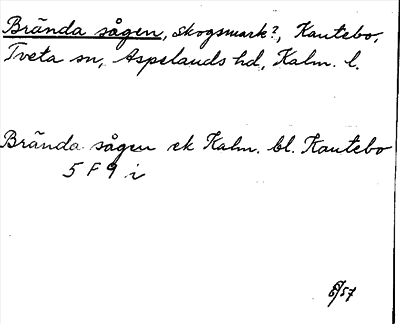 Brända sågen, skogsmark?, Kautebo,
Tveta sn, Aspelands hd, Kalm. l.
Brända sågen ek Kalm. bl. Kautebo
5 F 9 i
6/57